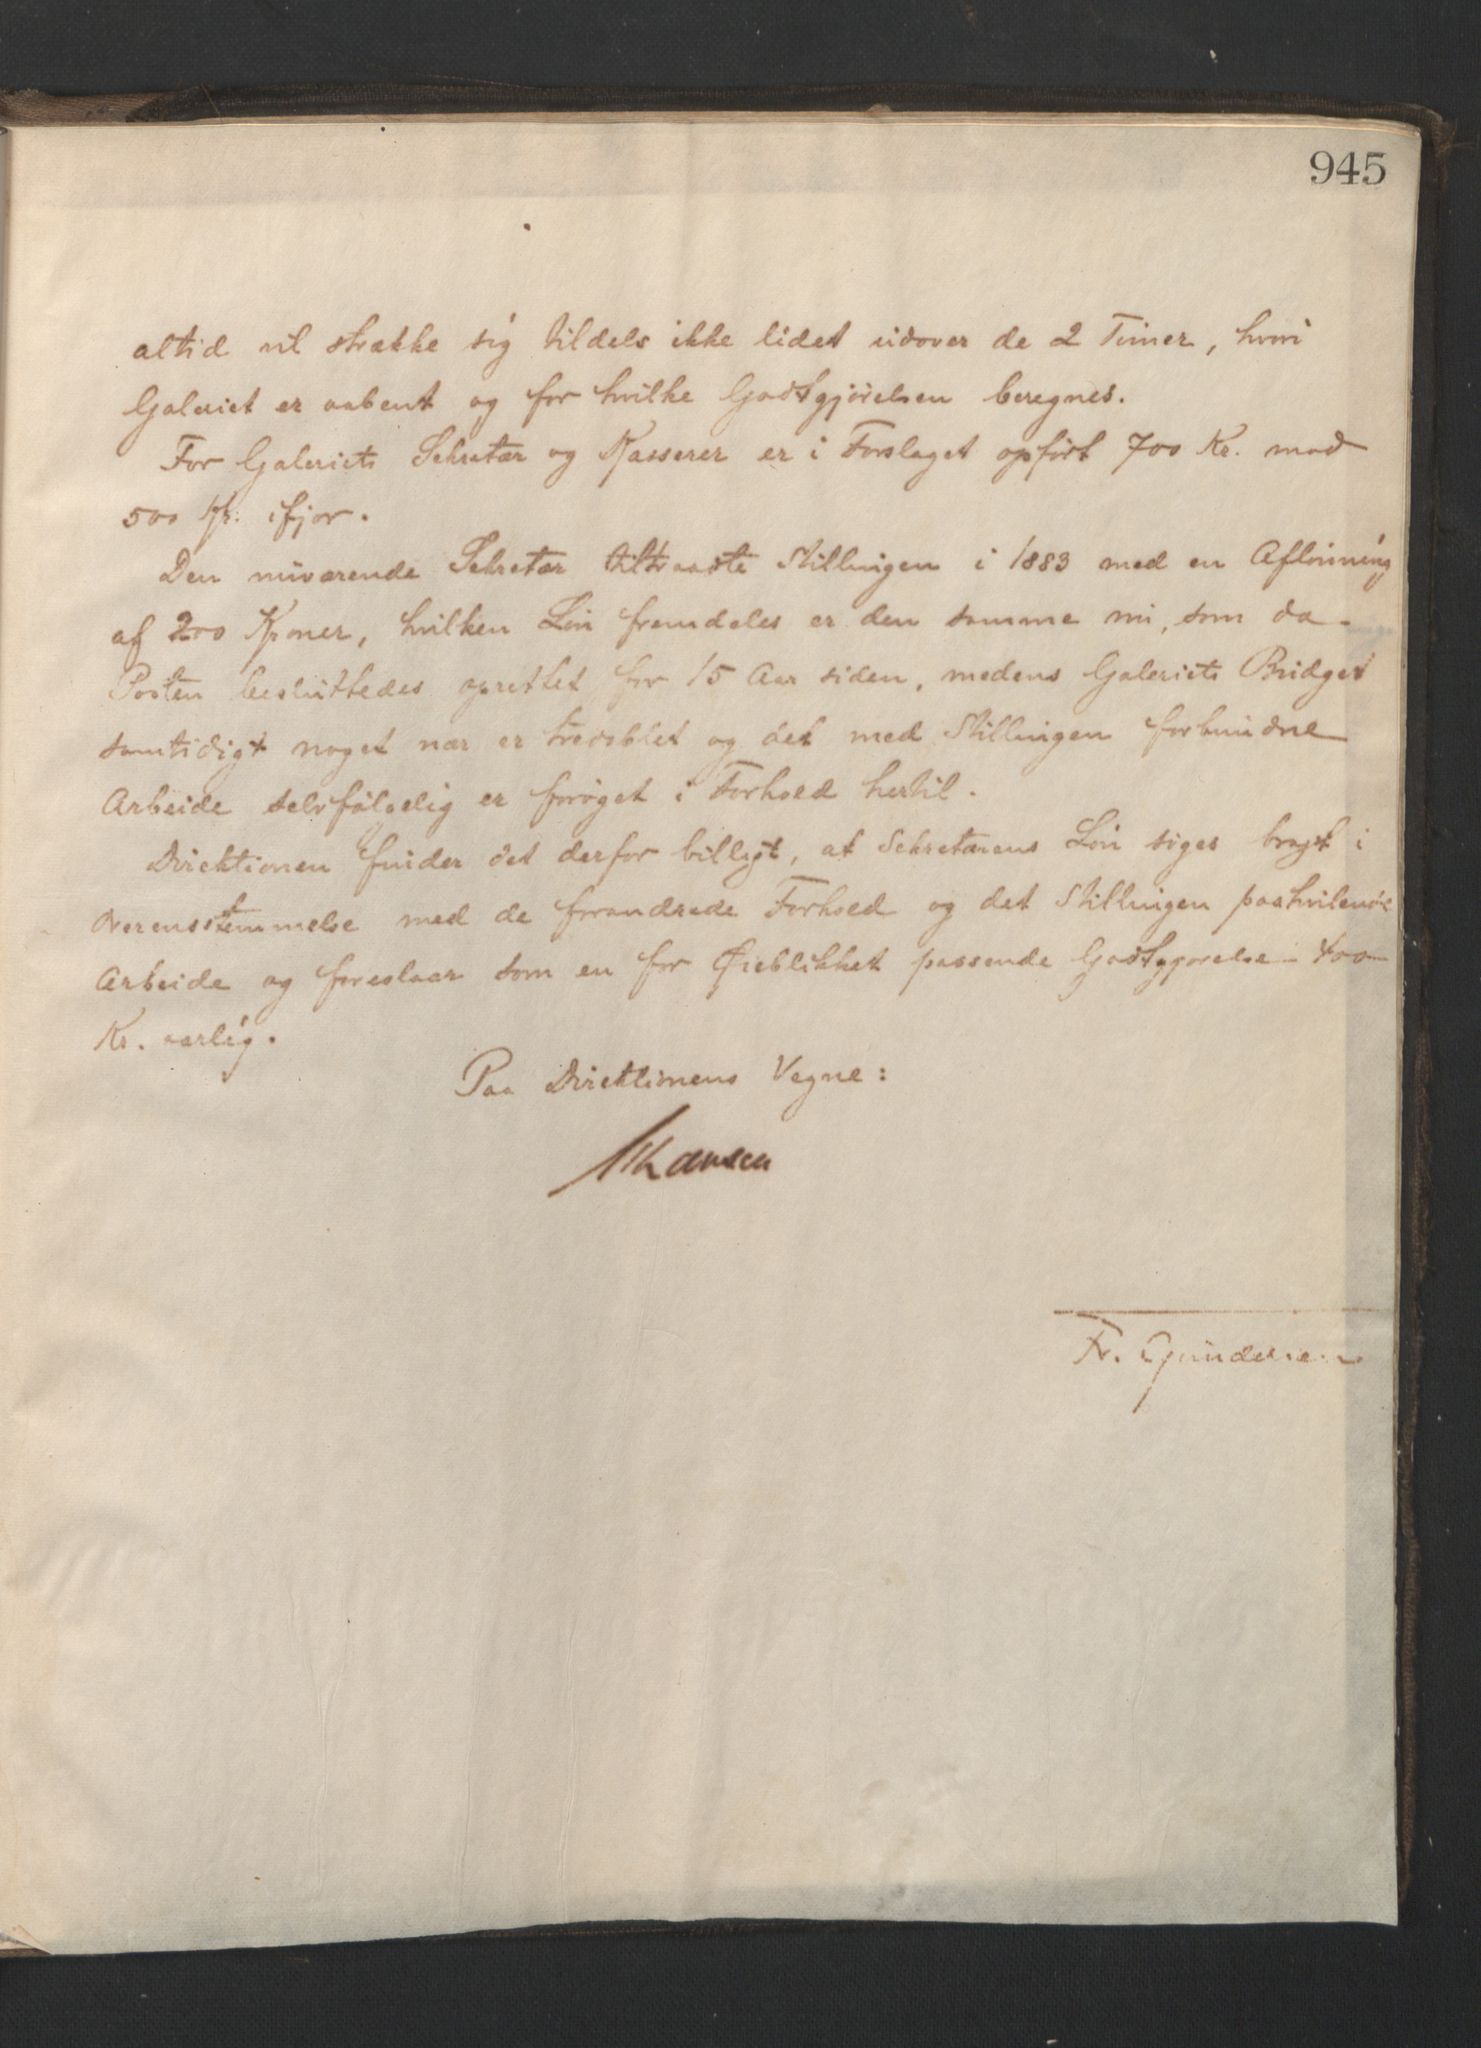 945
altid vil strække sig tildels ikke lidet udover de 2 Timer, hvori
Galeriet er aabent og for hvilke Godtgjörelsen beregnes.
For Galeriets Sekretær og Kasserer er i Forslaget opfört 700 Kr. mod
500 Kr. ifjor.
Den nuværende Sekretær tiltraadte Stillingen i 1883 med en Aflönning
af 200 Kroner, hvilken Lön fremdeles er den samme nu, som da
Posten besluttedes oprettet for 15 Aar siden, medens Galeriets Budget
samtidigt noget nær er tredoblet og det med Stillingen forbundne
Arbeide selvfölgelig er foröget i Forhold hertil.
Direktionen finder det derfor billigt, at Sekretærens Lön siges bragt i
Overensstemmelse med de forandrede Forhold og det Stillingen paahvilende
Arbeide og foreslaar som en for Øieblikket passende Godtgjorelse 400
Kr. aarlig.
Paa Direktionens Vegne:
Fr. Gundersen